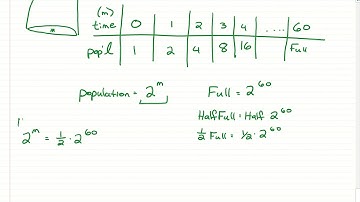 (m)
time 0 1 2 3 4 .... 60
pop'l 1 2 4 8 16 Full
population = 2^m Full = 2^60
Half Full = Half 2^60
2^m = 1/2 · 2^60 1/2 Full = 1/2 · 2^60